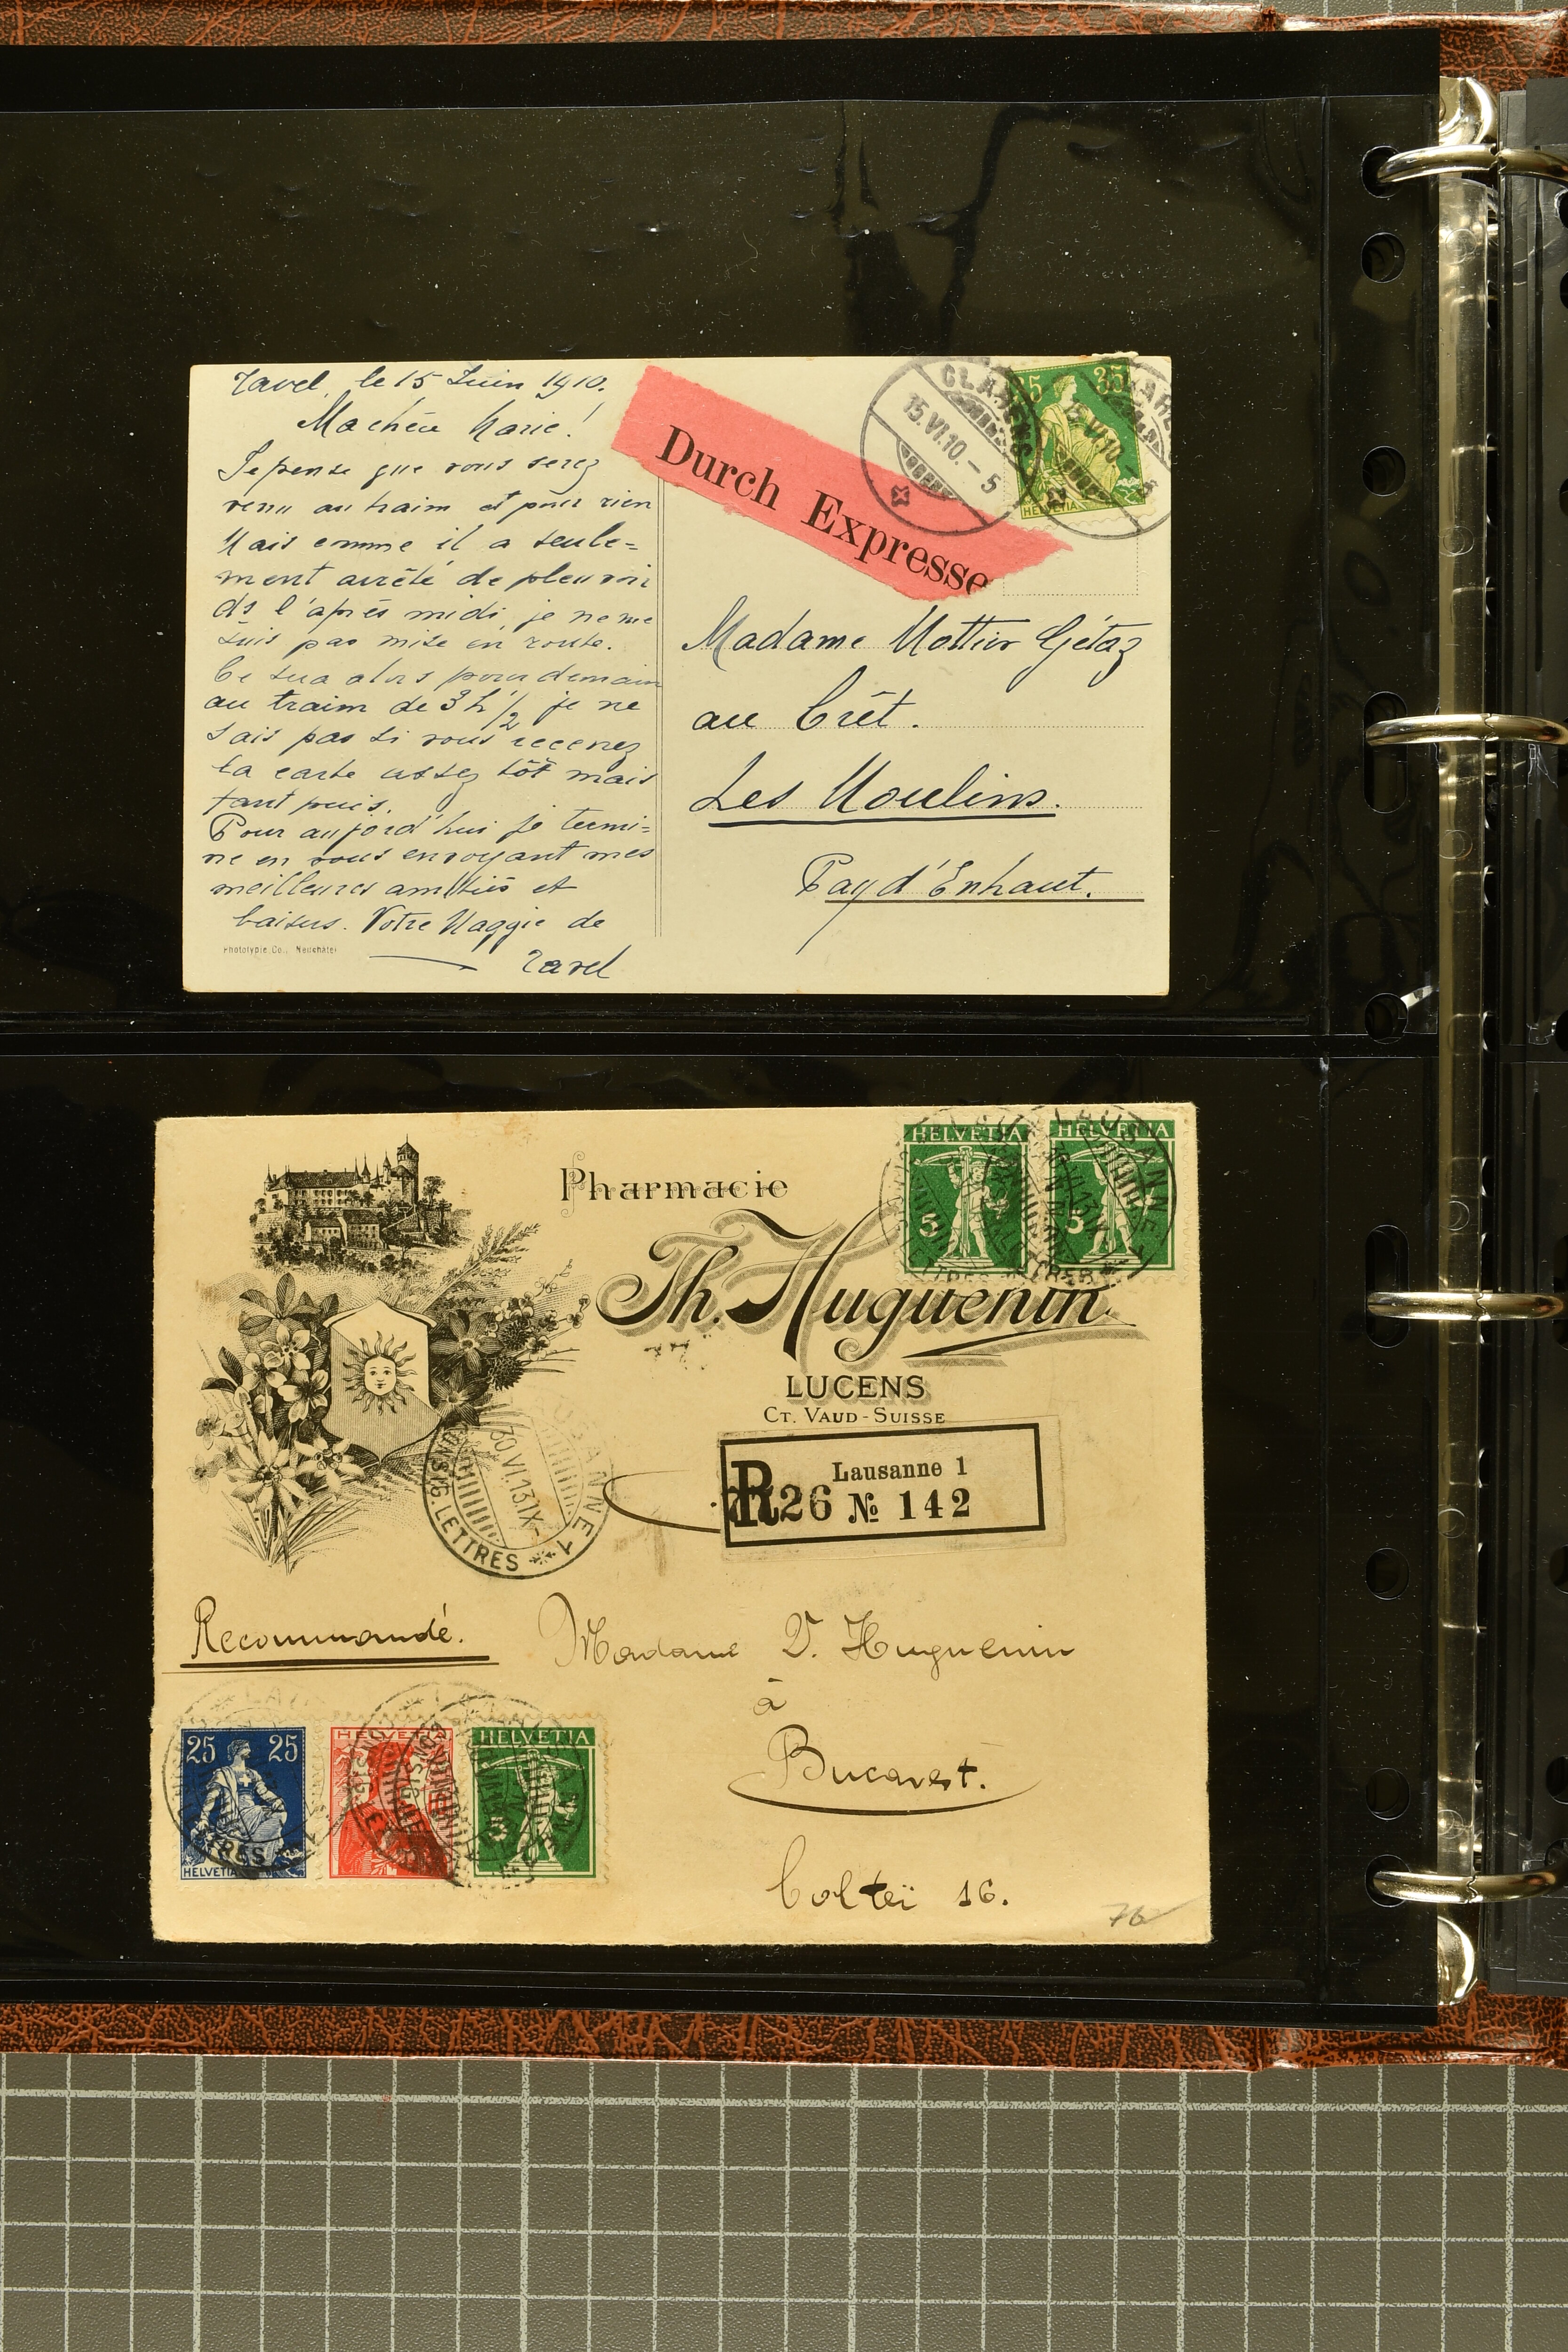 Tavel, le 15 Juin 1910.
Ma chère Marie!
Je pense que vous serez
venu au traim et pour rien
Mais comme il a seule=
ment arrêté de pleuvoir
ds l'après midi, je ne me
suis pas mise en route.
Ce sera alors pour demain
au traim de 3 h 1/2 je ne
sais pas si vous recevez
la carte assez tôt mais
tant puis.
Pour aujord'hui je termi=
ne en vous envoyant mes
meilleures amitiés et
baisers. Votre Maggie de
Tavel
Phototypie Co., Neuchâtel
Durch Expresse
CLARENS
15.VI.10.-5
35 35
HELVETIA
Madame Mottier Gétaz
au Crêt.
Les Moulins.
Pay d'Enhaut.
Pharmacie
Th. Huguenin
LUCENS
CT. VAUD-SUISSE
HELVETIA
5
HELVETIA
5
LAUSANNE 1
30.VI.13.IX-
CONSIG. LETTRES
R
Lausanne 1
26 № 142
Recommandé.
Madame V. Huguenin
à
Bucarest.
Coltei 16.
25 25
HELVETIA
HELVETIA
HELVETIA
5
76